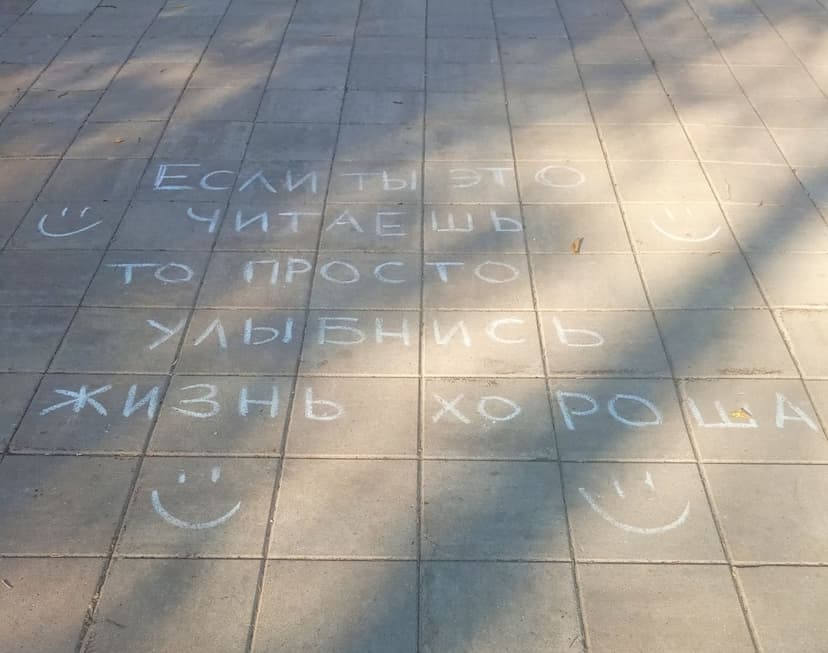 Если ты это
читаешь
то просто
улыбнись
жизнь хороша